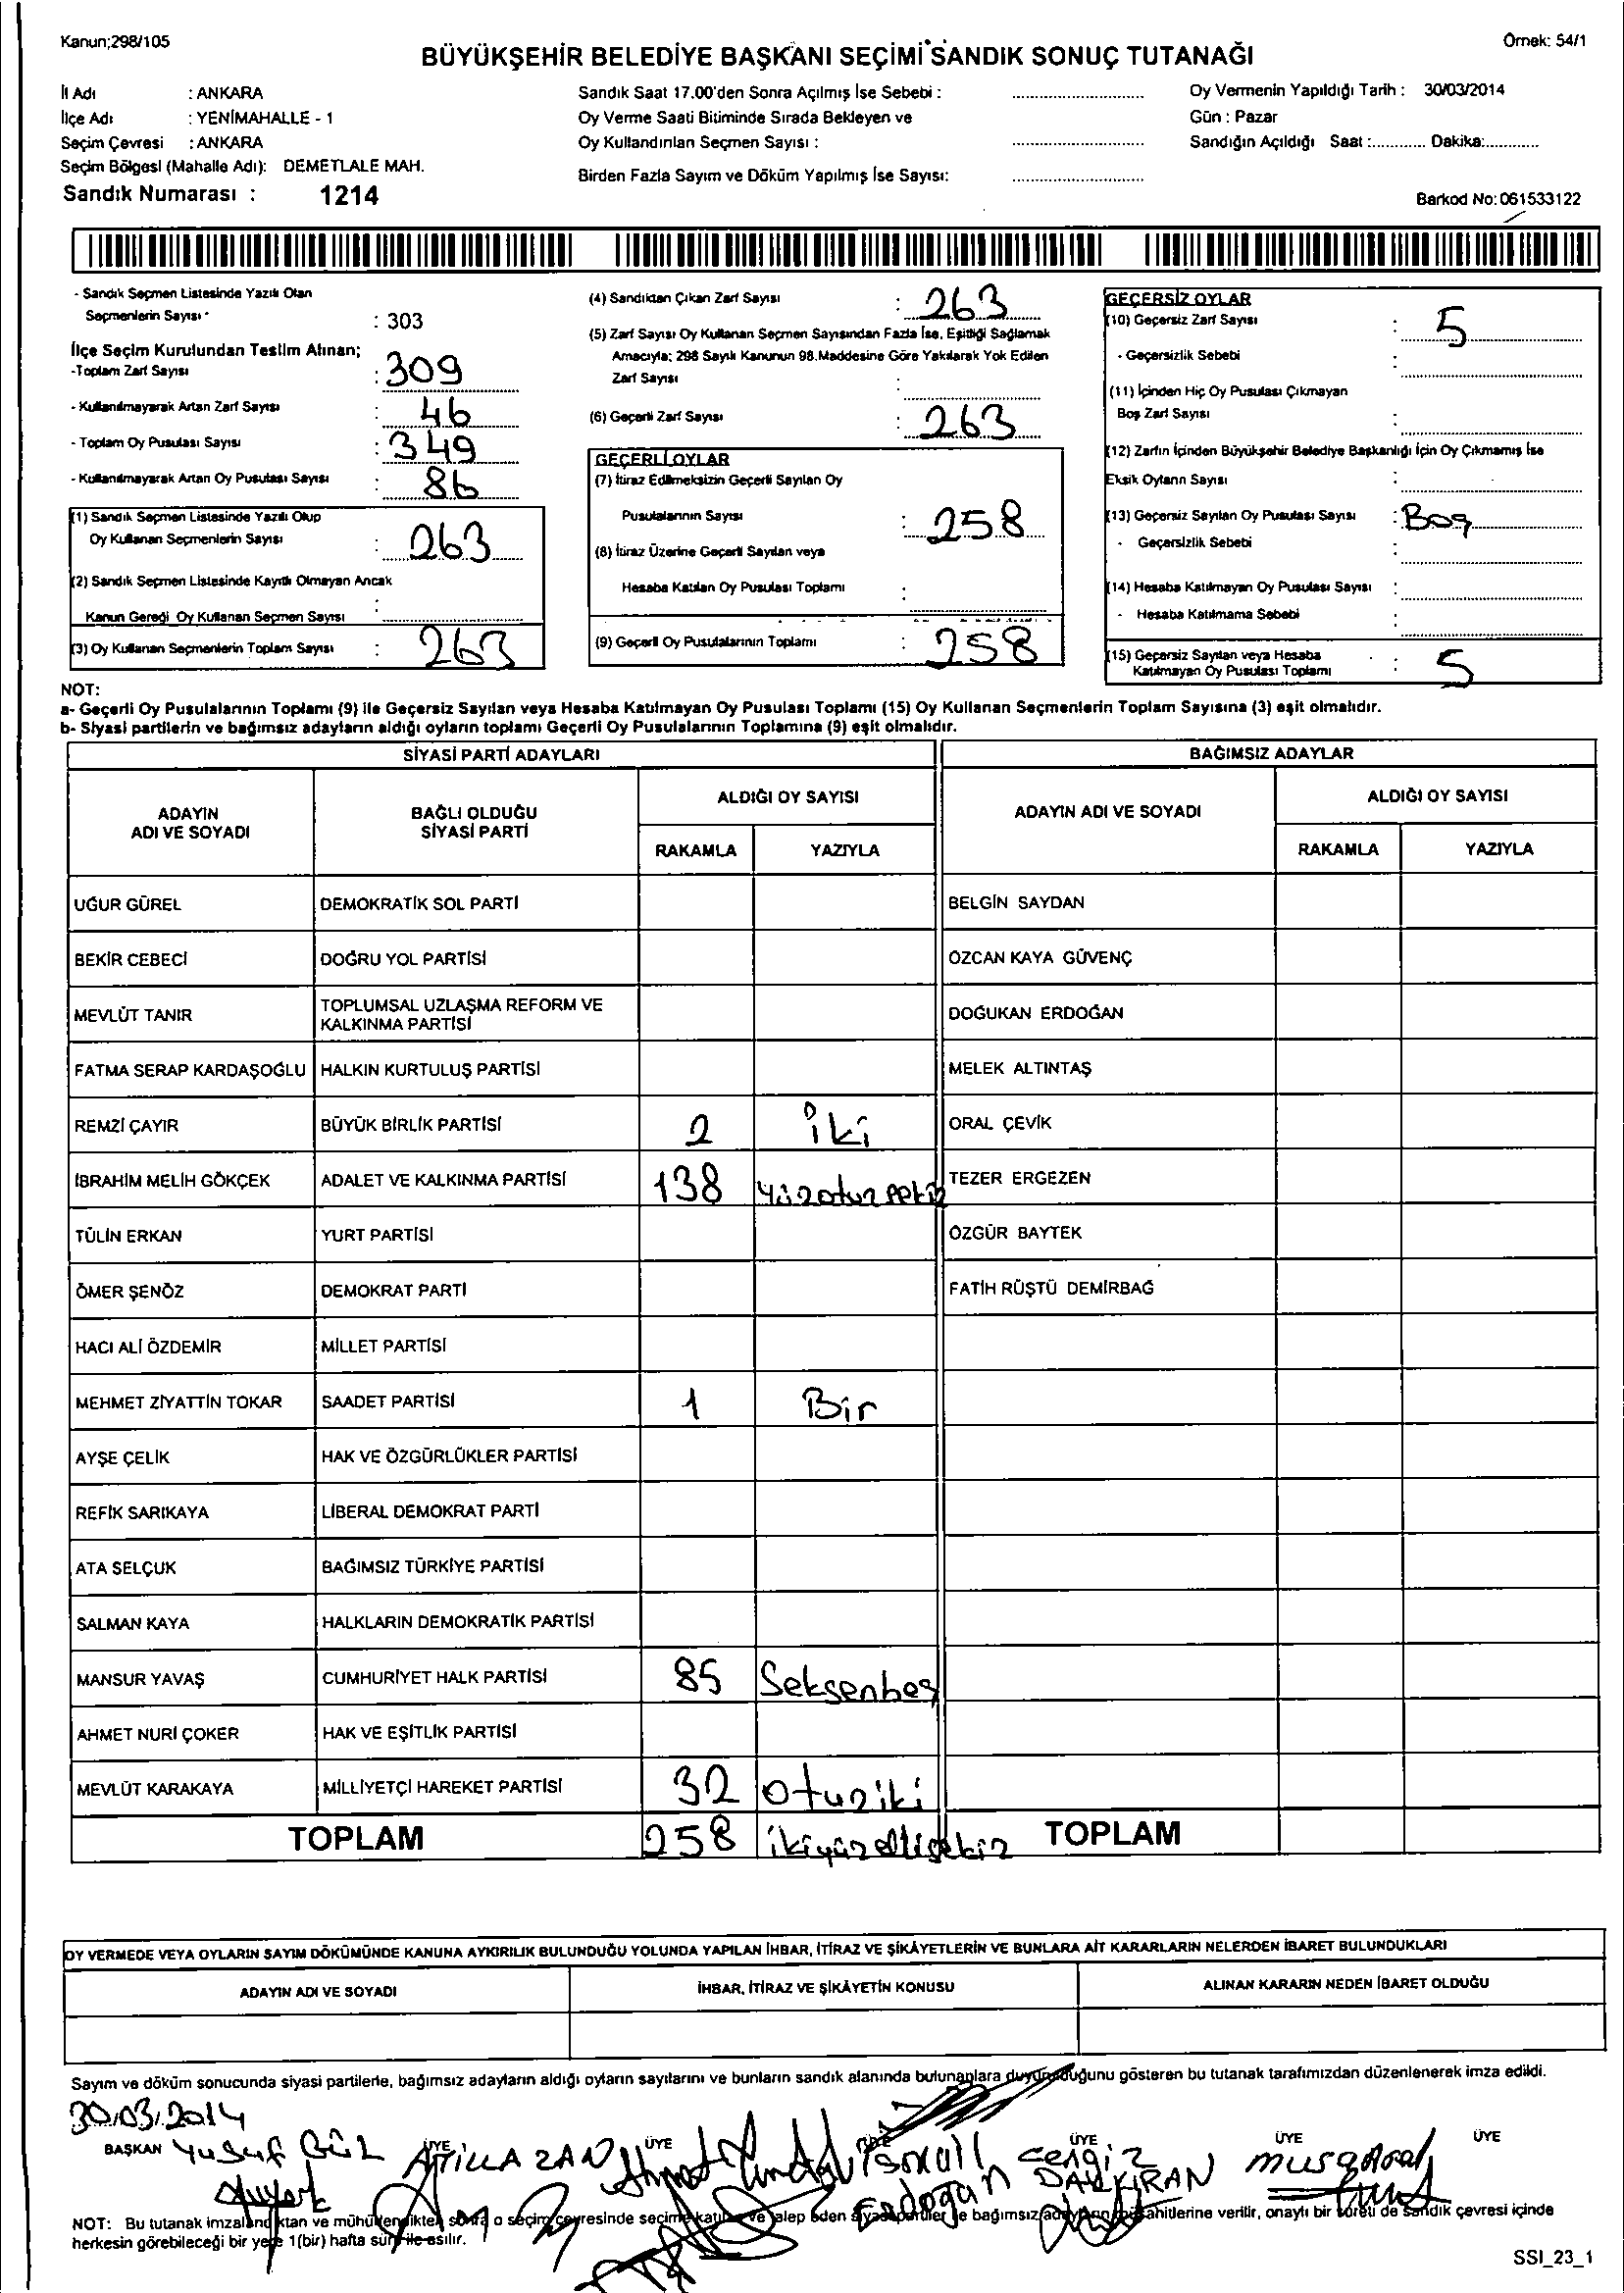 Kanun;298/105
Örnek: 54/1
BÜYÜKŞEHİR BELEDİYE BAŞKANI SEÇİMİ SANDIK SONUÇ TUTANAĞI
İl Adı : ANKARA
İlçe Adı : YENİMAHALLE - 1
Seçim Çevresi : ANKARA
Seçim Bölgesi (Mahalle Adı): DEMETLALE MAH.
Sandık Numarası : 1214
Sandık Saat 17.00'den Sonra Açılmış İse Sebebi : ............
Oy Verme Saati Bitiminde Sırada Bekleyen ve
Oy Kullandırılan Seçmen Sayısı : ............
Birden Fazla Sayım ve Döküm Yapılmış İse Sayısı: ............
Oy Vermenin Yapıldığı Tarih : 30/03/2014
Gün : Pazar
Sandığın Açıldığı Saat :............ Dakika:............
Barkod No: 061533122
- Sandık Seçmen Listesinde Yazılı Olan
Seçmenlerin Sayısı : 303
İlçe Seçim Kurulundan Teslim Alınan;
-Toplam Zarf Sayısı : 309
- Kullanılmayarak Artan Zarf Sayısı : 46
- Toplam Oy Pusulası Sayısı : 349
- Kullanılmayarak Artan Oy Pusulası Sayısı : 86
(1) Sandık Seçmen Listesinde Yazılı Olup
Oy Kullanan Seçmenlerin Sayısı : 263
(2) Sandık Seçmen Listesinde Kayıtlı Olmayan Ancak
Kanun Gereği Oy Kullanan Seçmen Sayısı :
(3) Oy Kullanan Seçmenlerin Toplam Sayısı : 263
(4) Sandıktan Çıkan Zarf Sayısı : 263
(5) Zarf Sayısı Oy Kullanan Seçmen Sayısından Fazla İse, Eşitliği Sağlamak
Amacıyla; 298 Sayılı Kanunun 98.Maddesine Göre Yakılarak Yok Edilen
Zarf Sayısı :
(6) Geçerli Zarf Sayısı : 263
GEÇERLİ OYLAR
(7) İtiraz Edilmeksizin Geçerli Sayılan Oy
Pusulalarının Sayısı : 258
(8) İtiraz Üzerine Geçerli Sayılan veya
Hesaba Katılan Oy Pusulası Toplamı :
(9) Geçerli Oy Pusulalarının Toplamı : 258
GEÇERSİZ OYLAR
(10) Geçersiz Zarf Sayısı : 5
- Geçersizlik Sebebi :
(11) İçinden Hiç Oy Pusulası Çıkmayan
Boş Zarf Sayısı :
(12) Zarfın İçinden Büyükşehir Belediye Başkanlığı İçin Oy Çıkmamış İse
Eksik Oyların Sayısı :
(13) Geçersiz Sayılan Oy Pusulası Sayısı : Boş
- Geçersizlik Sebebi :
(14) Hesaba Katılmayan Oy Pusulası Sayısı :
- Hesaba Katılmama Sebebi :
(15) Geçersiz Sayılan veya Hesaba
Katılmayan Oy Pusulası Toplamı : 5
NOT:
a- Geçerli Oy Pusulalarının Toplamı (9) ile Geçersiz Sayılan veya Hesaba Katılmayan Oy Pusulası Toplamı (15) Oy Kullanan Seçmenlerin Toplam Sayısına (3) eşit olmalıdır.
b- Siyasi partilerin ve bağımsız adayların aldığı oyların toplamı Geçerli Oy Pusulalarının Toplamına (9) eşit olmalıdır.
SİYASİ PARTİ ADAYLARI BAĞIMSIZ ADAYLAR
ADAYIN ADI VE SOYADI BAĞLI OLDUĞU SİYASİ PARTİ ALDIĞI OY SAYISI ADAYIN ADI VE SOYADI ALDIĞI OY SAYISI
RAKAMLA YAZIYLA RAKAMLA YAZIYLA
UĞUR GÜREL DEMOKRATİK SOL PARTİ BELGİN SAYDAN
BEKİR CEBECİ DOĞRU YOL PARTİSİ ÖZCAN KAYA GÜVENÇ
MEVLÜT TANIR TOPLUMSAL UZLAŞMA REFORM VE KALKINMA PARTİSİ DOĞUKAN ERDOĞAN
FATMA SERAP KARDAŞOĞLU HALKIN KURTULUŞ PARTİSİ MELEK ALTINTAŞ
REMZİ ÇAYIR BÜYÜK BİRLİK PARTİSİ 2 iki ORAL ÇEVİK
İBRAHİM MELİH GÖKÇEK ADALET VE KALKINMA PARTİSİ 138 yüzotuzsekiz TEZER ERGEZEN
TÜLİN ERKAN YURT PARTİSİ ÖZGÜR BAYTEK
ÖMER ŞENÖZ DEMOKRAT PARTİ FATİH RÜŞTÜ DEMİRBAĞ
HACI ALİ ÖZDEMİR MİLLET PARTİSİ
MEHMET ZİYATTİN TOKAR SAADET PARTİSİ 1 Bir
AYŞE ÇELİK HAK VE ÖZGÜRLÜKLER PARTİSİ
REFİK SARIKAYA LİBERAL DEMOKRAT PARTİ
ATA SELÇUK BAĞIMSIZ TÜRKİYE PARTİSİ
SALMAN KAYA HALKLARIN DEMOKRATİK PARTİSİ
MANSUR YAVAŞ CUMHURİYET HALK PARTİSİ 85 Seksenbeş
AHMET NURİ ÇOKER HAK VE EŞİTLİK PARTİSİ
MEVLÜT KARAKAYA MİLLİYETÇİ HAREKET PARTİSİ 32 otuziki
TOPLAM 258 ikiyüzellisekiz TOPLAM
OY VERMEDE VEYA OYLARIN SAYIM DÖKÜMÜNDE KANUNA AYKIRILIK BULUNDUĞU YOLUNDA YAPILAN İHBAR, İTİRAZ VE ŞİKÂYETLERİN VE BUNLARA AİT KARARLARIN NELERDEN İBARET BULUNDUKLARI
ADAYIN ADI VE SOYADI İHBAR, İTİRAZ VE ŞİKÂYETİN KONUSU ALINAN KARARIN NEDEN İBARET OLDUĞU
Sayım ve döküm sonucunda siyasi partilerle, bağımsız adayların aldığı oyların sayılarını ve bunların sandık alanında bulunanlara duyurulduğunu gösteren bu tutanak tarafımızdan düzenlenerek imza edildi.
30.03.2014
BAŞKAN ÜYE ÜYE ÜYE ÜYE ÜYE ÜYE
Yusuf Gül ATİLLA ZAN Ahmet İsmail Erdoğan Cengiz DALKIRAN
NOT: Bu tutanak imzalandıktan ve mühürlendikten sonra o seçim çevresinde seçime katılan ve talep eden siyasi partiler ile bağımsız adayların müşahitlerine verilir, onaylı bir sureti de sandık çevresi içinde
herkesin görebileceği bir yere 1(bir) hafta süre ile asılır.
SSI_23_1